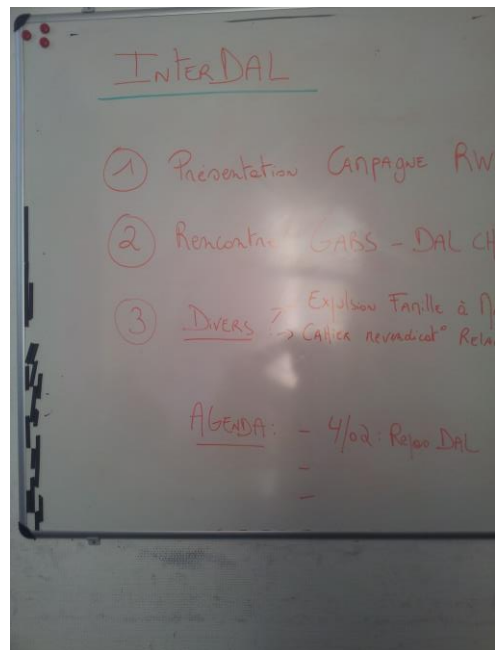 InterDAL
① Présentation Campagne RW
② Rencontre GABS - DAL CH
③ Divers : → Expulsion Famille à
→ Cahier revendicat° Rela
AGENDA : - 4/02 : Repas DAL
-
-